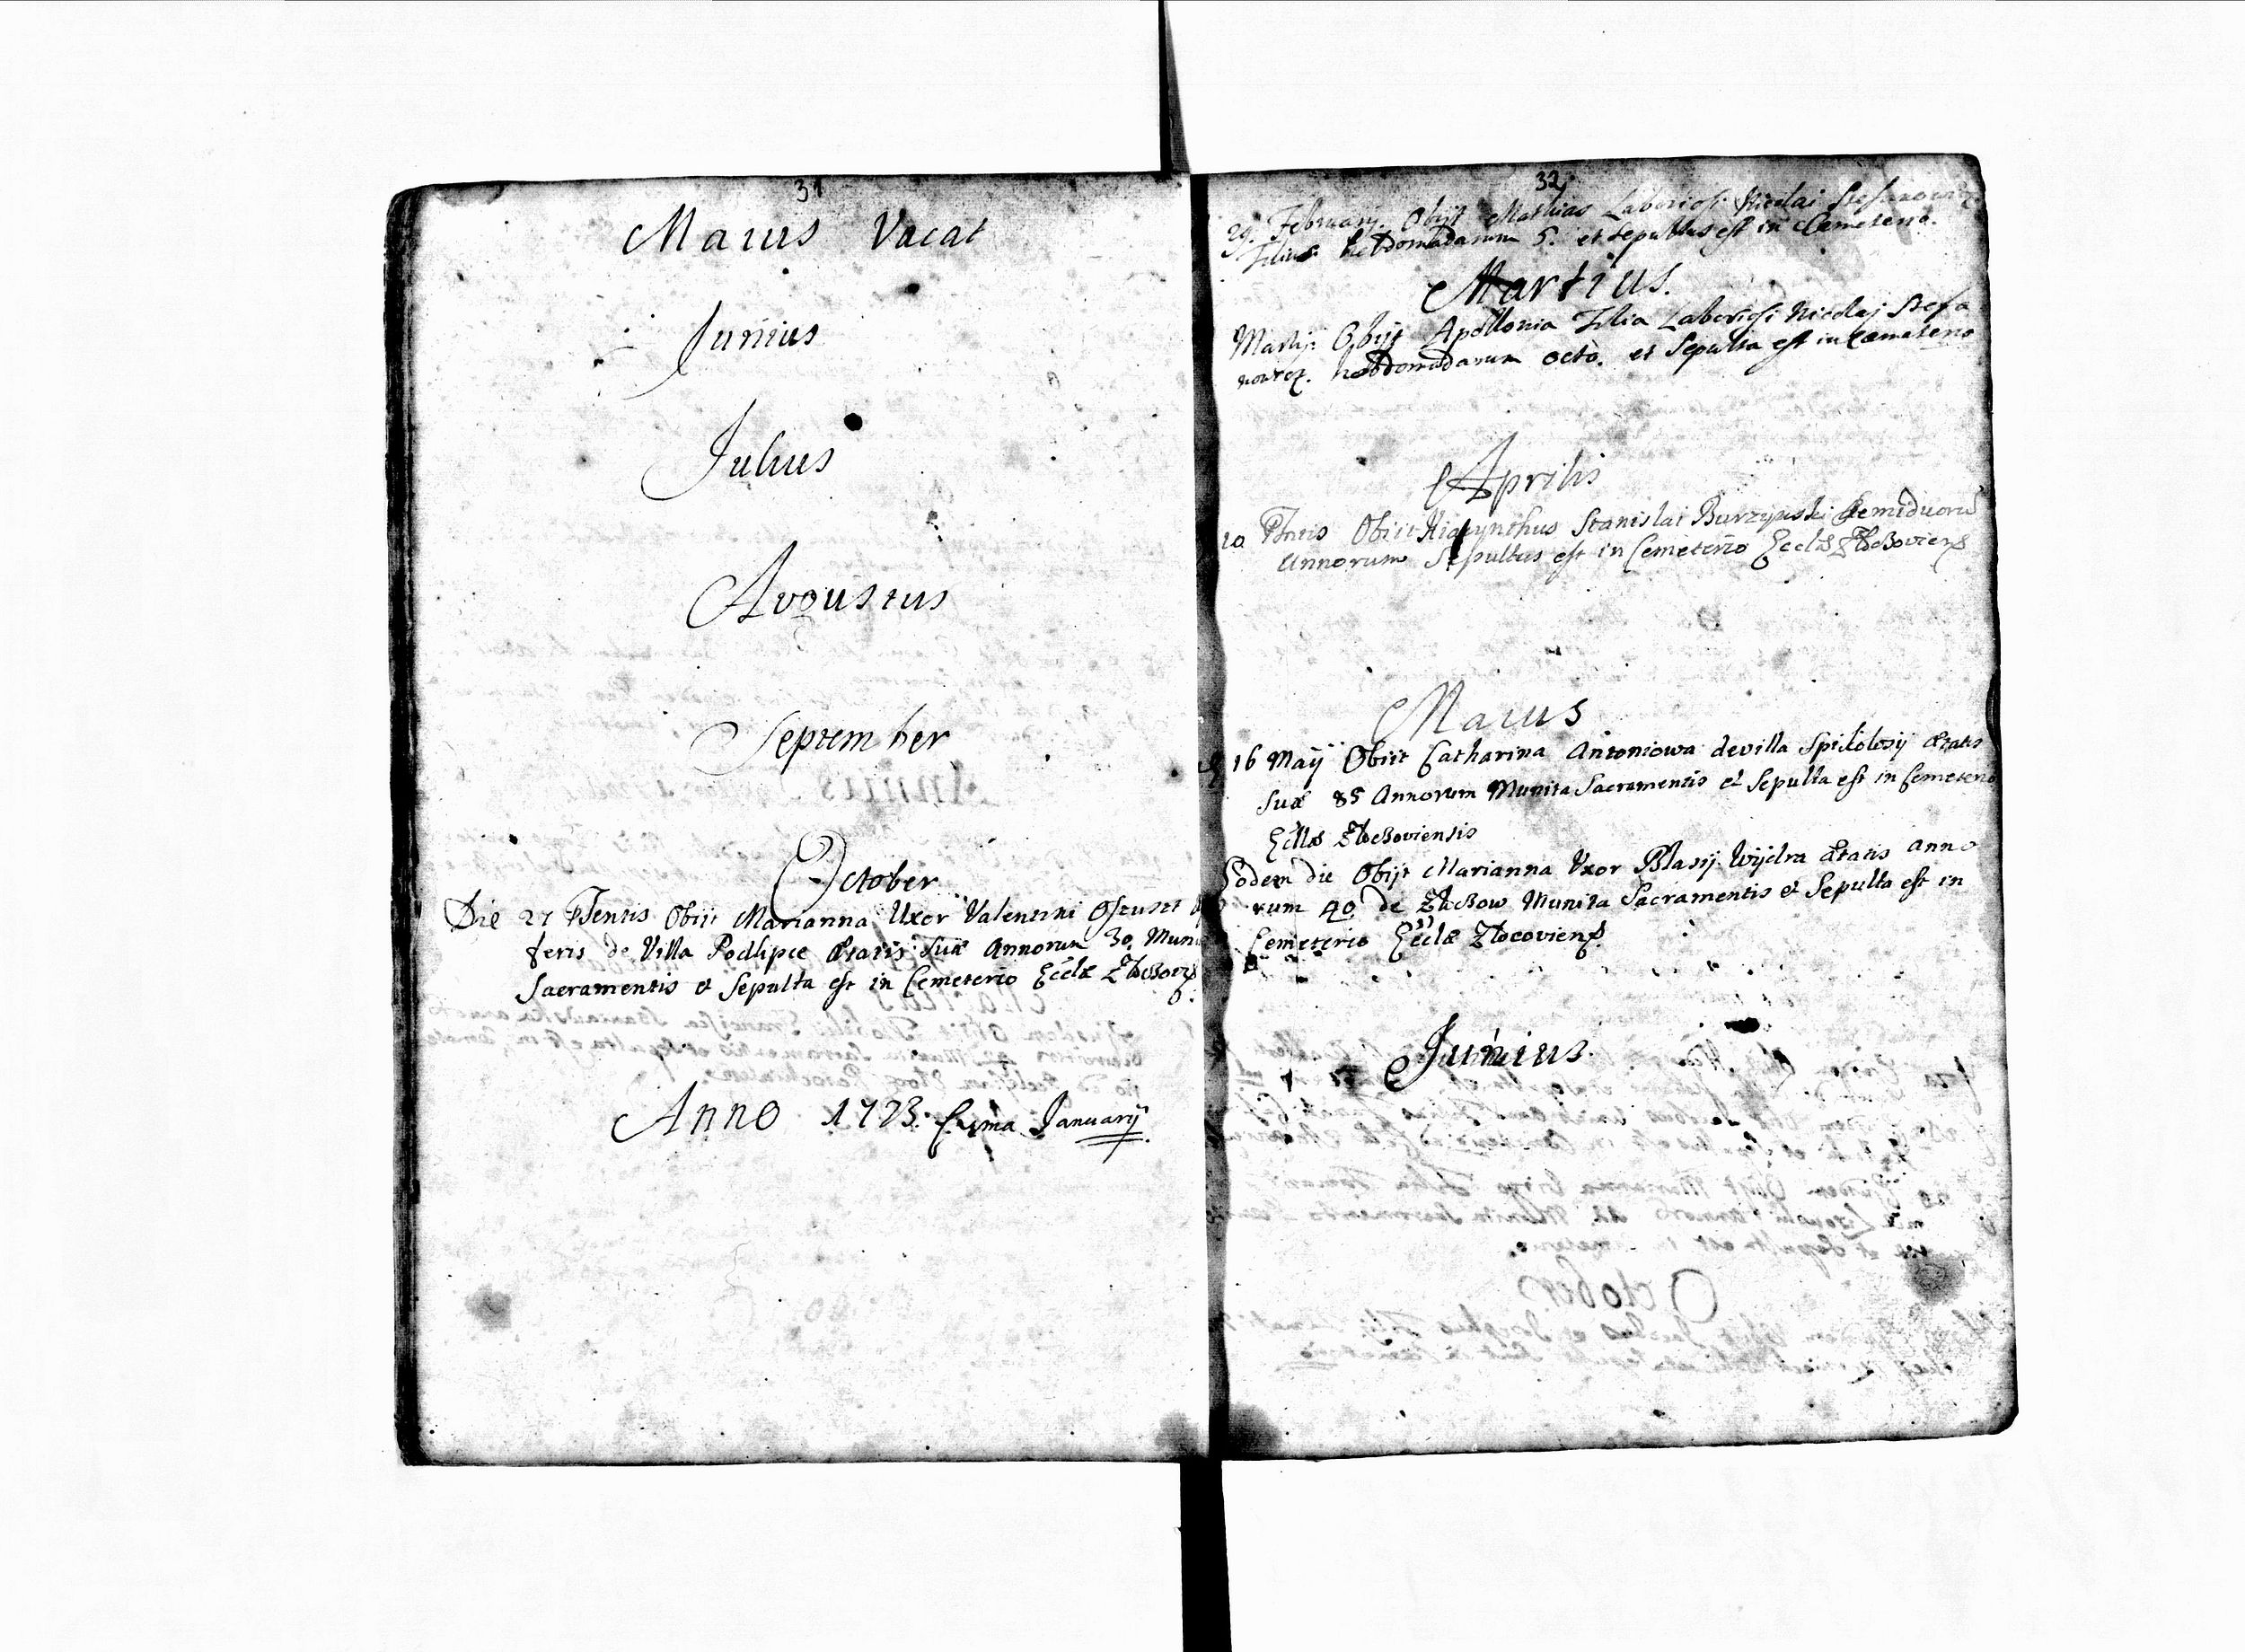 31
Maius Vacat
Junius
Julius
Avgustus
September
October
Die 27 Psentis Obiit Marianna Uxor Valentini
feris de Villa Podlipce Ætatis suæ Annorum 30. Muni
Sacramentis et Sepulta est in Cemeterio Ecclæ
Anno 1723. Januarij
32
29. Februarij. Obijt Mathias Laboriosi Nicolai Stefanowicz
Filius hebdomadarum 5. et sepultus est in Cemeterio.
Martius.
Martij. Obijt Apollonia Filia Laboriosi Nicolaj Stefa
nowicz. hebdomadarum octo. et Sepulta est in Cæmeterio
Aprilis
10 Psntis Obiit Hiacynthus Stanislai Burzynski
Annorum Sepultus est in Cemeterio Ecclæ
Maius
16 Maij Obiit Catharina Antoniowa de villa Spikolosij Ætatis
suæ 85 Annorum Munita Sacramentis et Sepulta est in Cemeterio
Ecllæ Złoczoviensis
Eodem die Obijt Marianna Vxor Blasij Wijdra Ætatis Anno
rum 40 de Złoczow Munita Sacramentis et Sepulta est in
Cemeterio Ecclæ Złocoviens.
Junius.